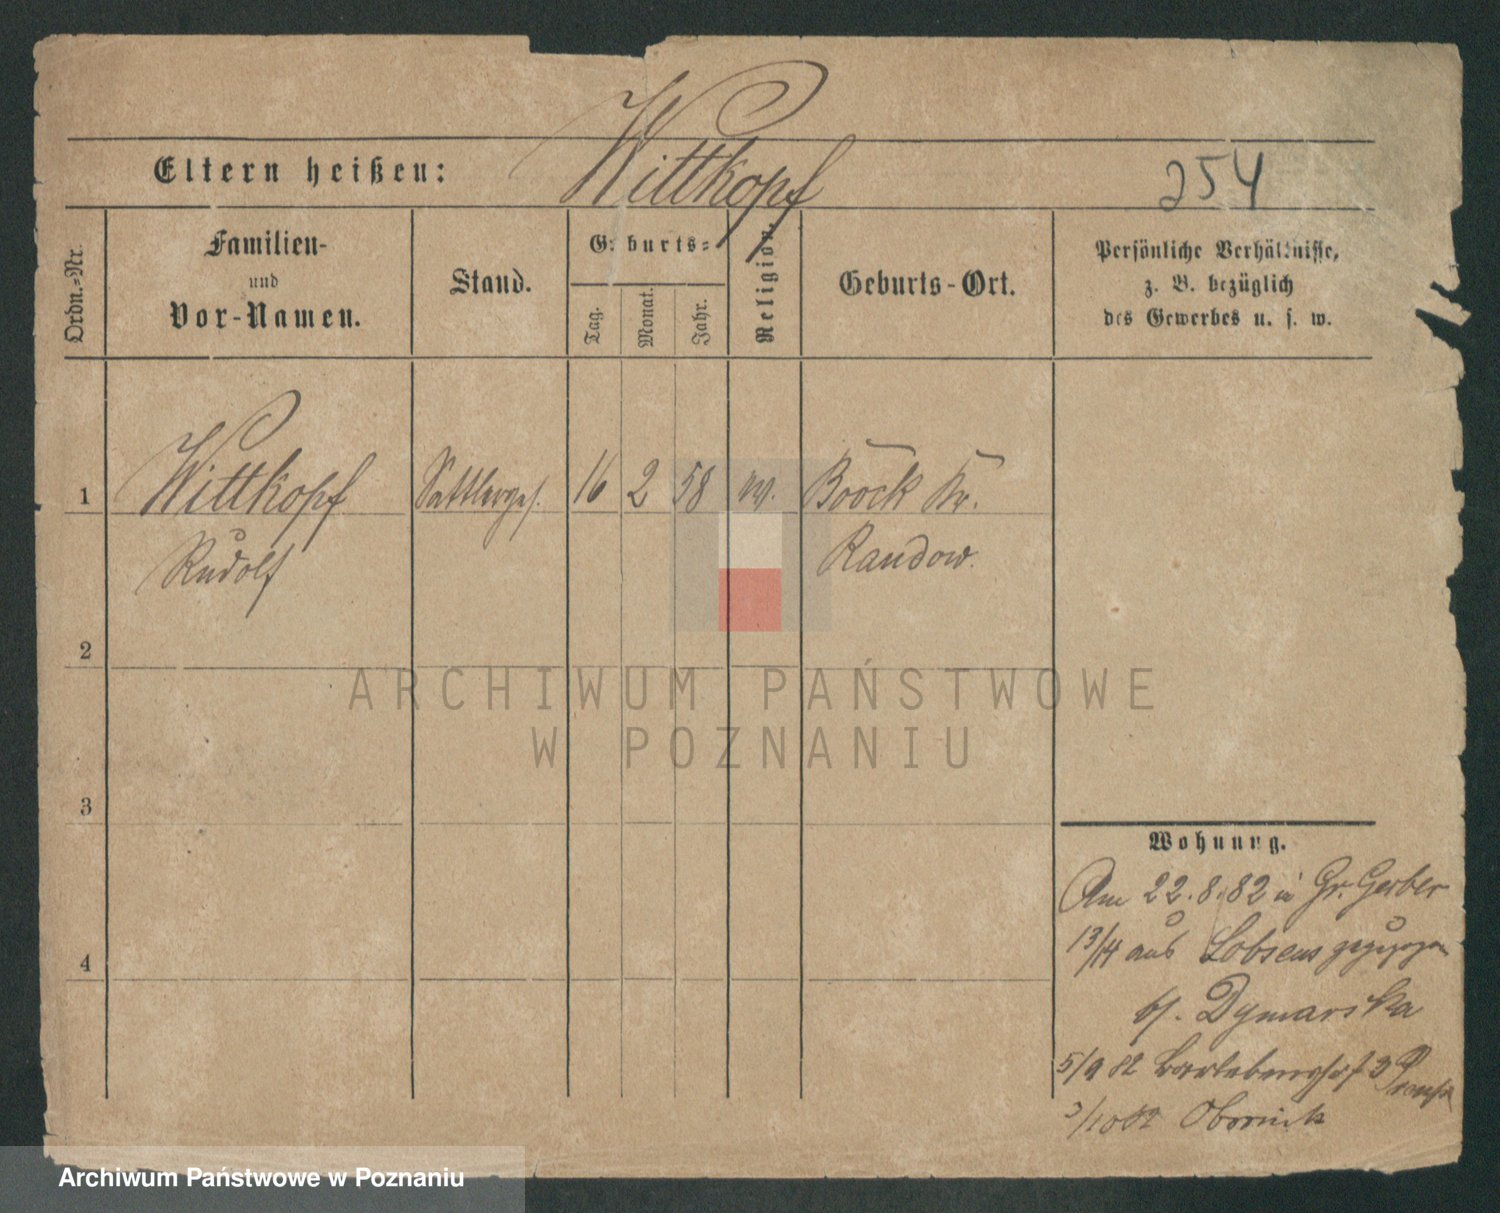 Wittkopf
Eltern heißen:
254
Ordn.-Nr.
Familien-
und
Vor-Namen.
Stand.
Geburts-
Tag.
Monat.
Jahr.
Religion.
Geburts-Ort.
Persönliche Verhältnisse,
z. B. bezüglich
des Gewerbes u. s. w.
1
Wittkopf
Rudolf
Sattlerges.
16
2
58
Boock Kr.
Randow.
2
ARCHIWUM PAŃSTWOWE
W POZNANIU
3
4
Wohnung.
Am 22.8.82 in Gr. Gerber
13/14 aus Lobsens gezogen
bj. Dymarska
5/9 82 3
3/10 82 Obornik
Archiwum Państwowe w Poznaniu